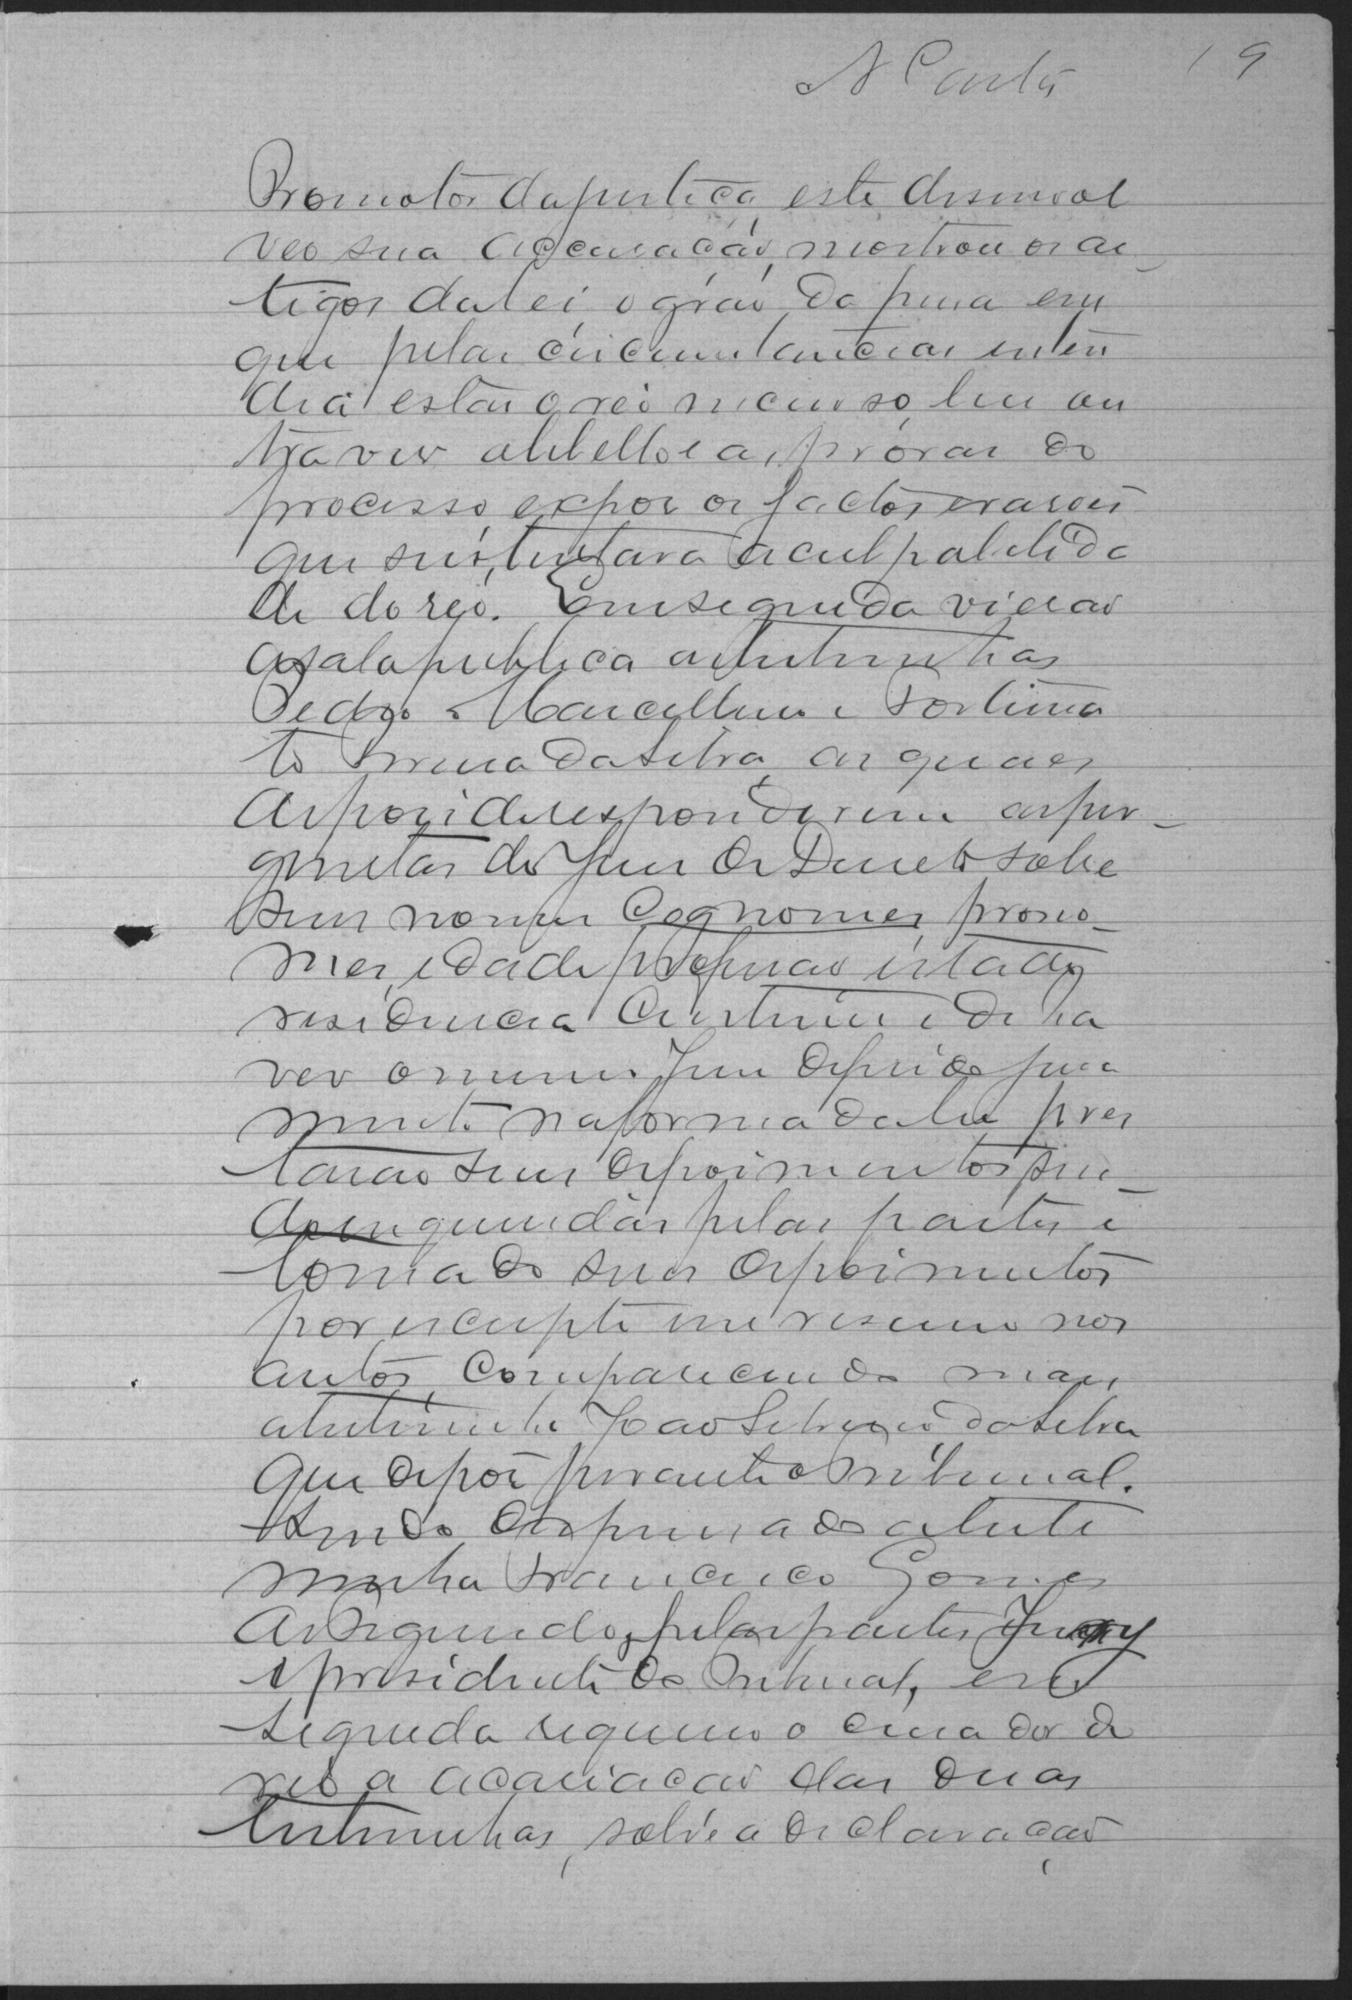 19
Promotor da justiça, este desenvol
veo sua accusação, mostrou os ar-
tigos da lei o gráo da pena em
que pelas circumstancias enten
dia estar o reo incurso, leu ou
tra vez o libello e as próvas do
processo expor os factos e rasões
que sustentava a culpabilida
de do reo. Em seguida vierão
a sala publica as testemunhas
Pedro Marcellino e Fortuna
to da Silva, as quaes
depois de responderem as per-
guntas do Juiz de Direito sobre
seus nomes cognomes, prono-
mes, idade profissão estado
residencia e de ha
ver o mesmo Juiz deferido jura
mento na forma da lei pres
tarão seus depoimentos sen-
do inqueridas pelas partes e
tomado seus depoimentos
por escripto em resumo nos
autos, comparecendo mais
a testemunha João Silverio da Silva
que depôs perante o Tribunal.
Sendo dispensado a teste
munha Francisco Gomes
de Segundo, pelas partes Jury
e presidente do Tribunal, em
seguida requereo o curador do
reo a acariação das duas
testemunhas, sobre a declaração